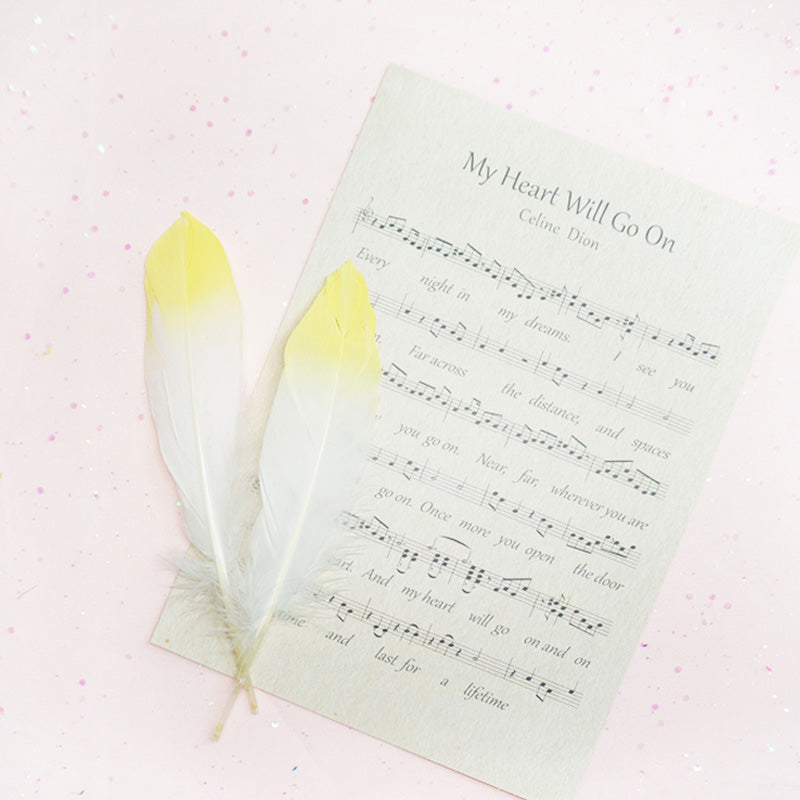 My Heart Will Go On
Celine Dion
Every night in my dreams. I see you
Far across the distance, and spaces
you go on. Near, far, wherever you are
go on. Once more you open the door
And my heart will go on and on
and last for a lifetime